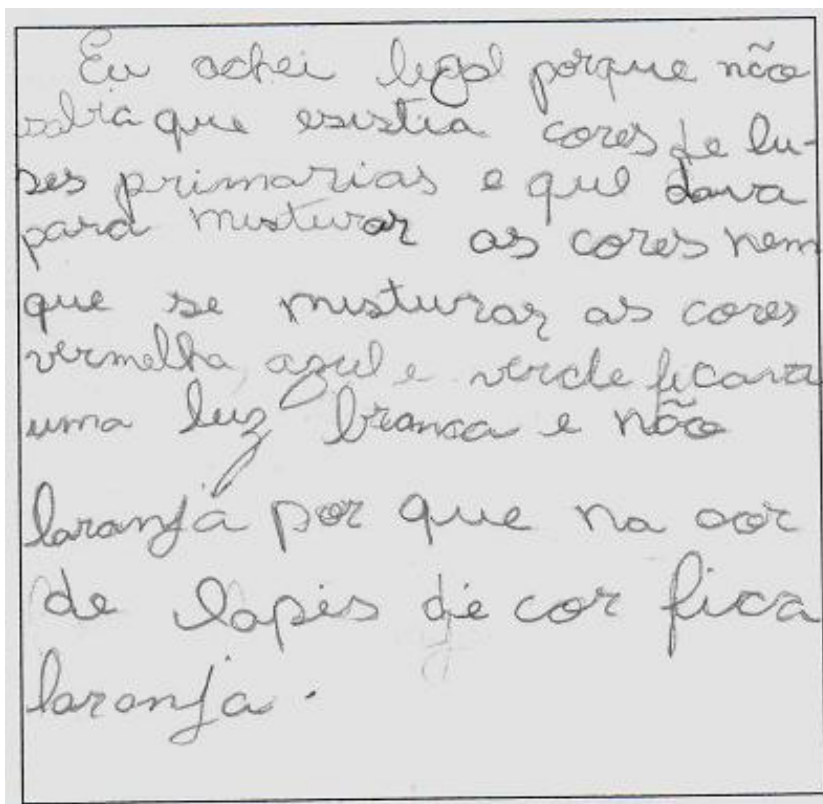 Eu achei legal porque não
sabia que esistia cores de lu-
ses primarias e que dava
para misturar as cores nem
que se misturar as cores
vermelha, azul e verde ficaria
uma luz branca e não
laranja por que na cor
de lapis de cor fica
laranja.